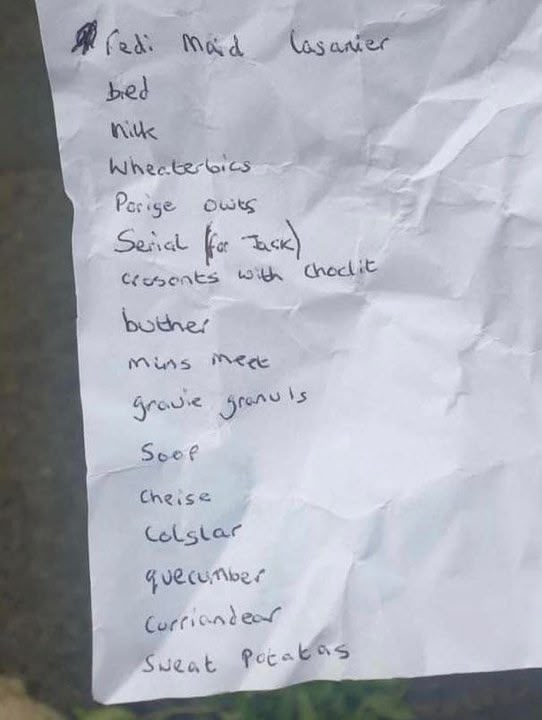 redi maid lasanier
bred
milk
Wheaterbics
Porige owts
Serial (for Jack)
crosonts with choclit
buther
mins meet
gravie granuls
Soop
cheise
Colslar
quecumber
Curriandear
Sweat Potatas